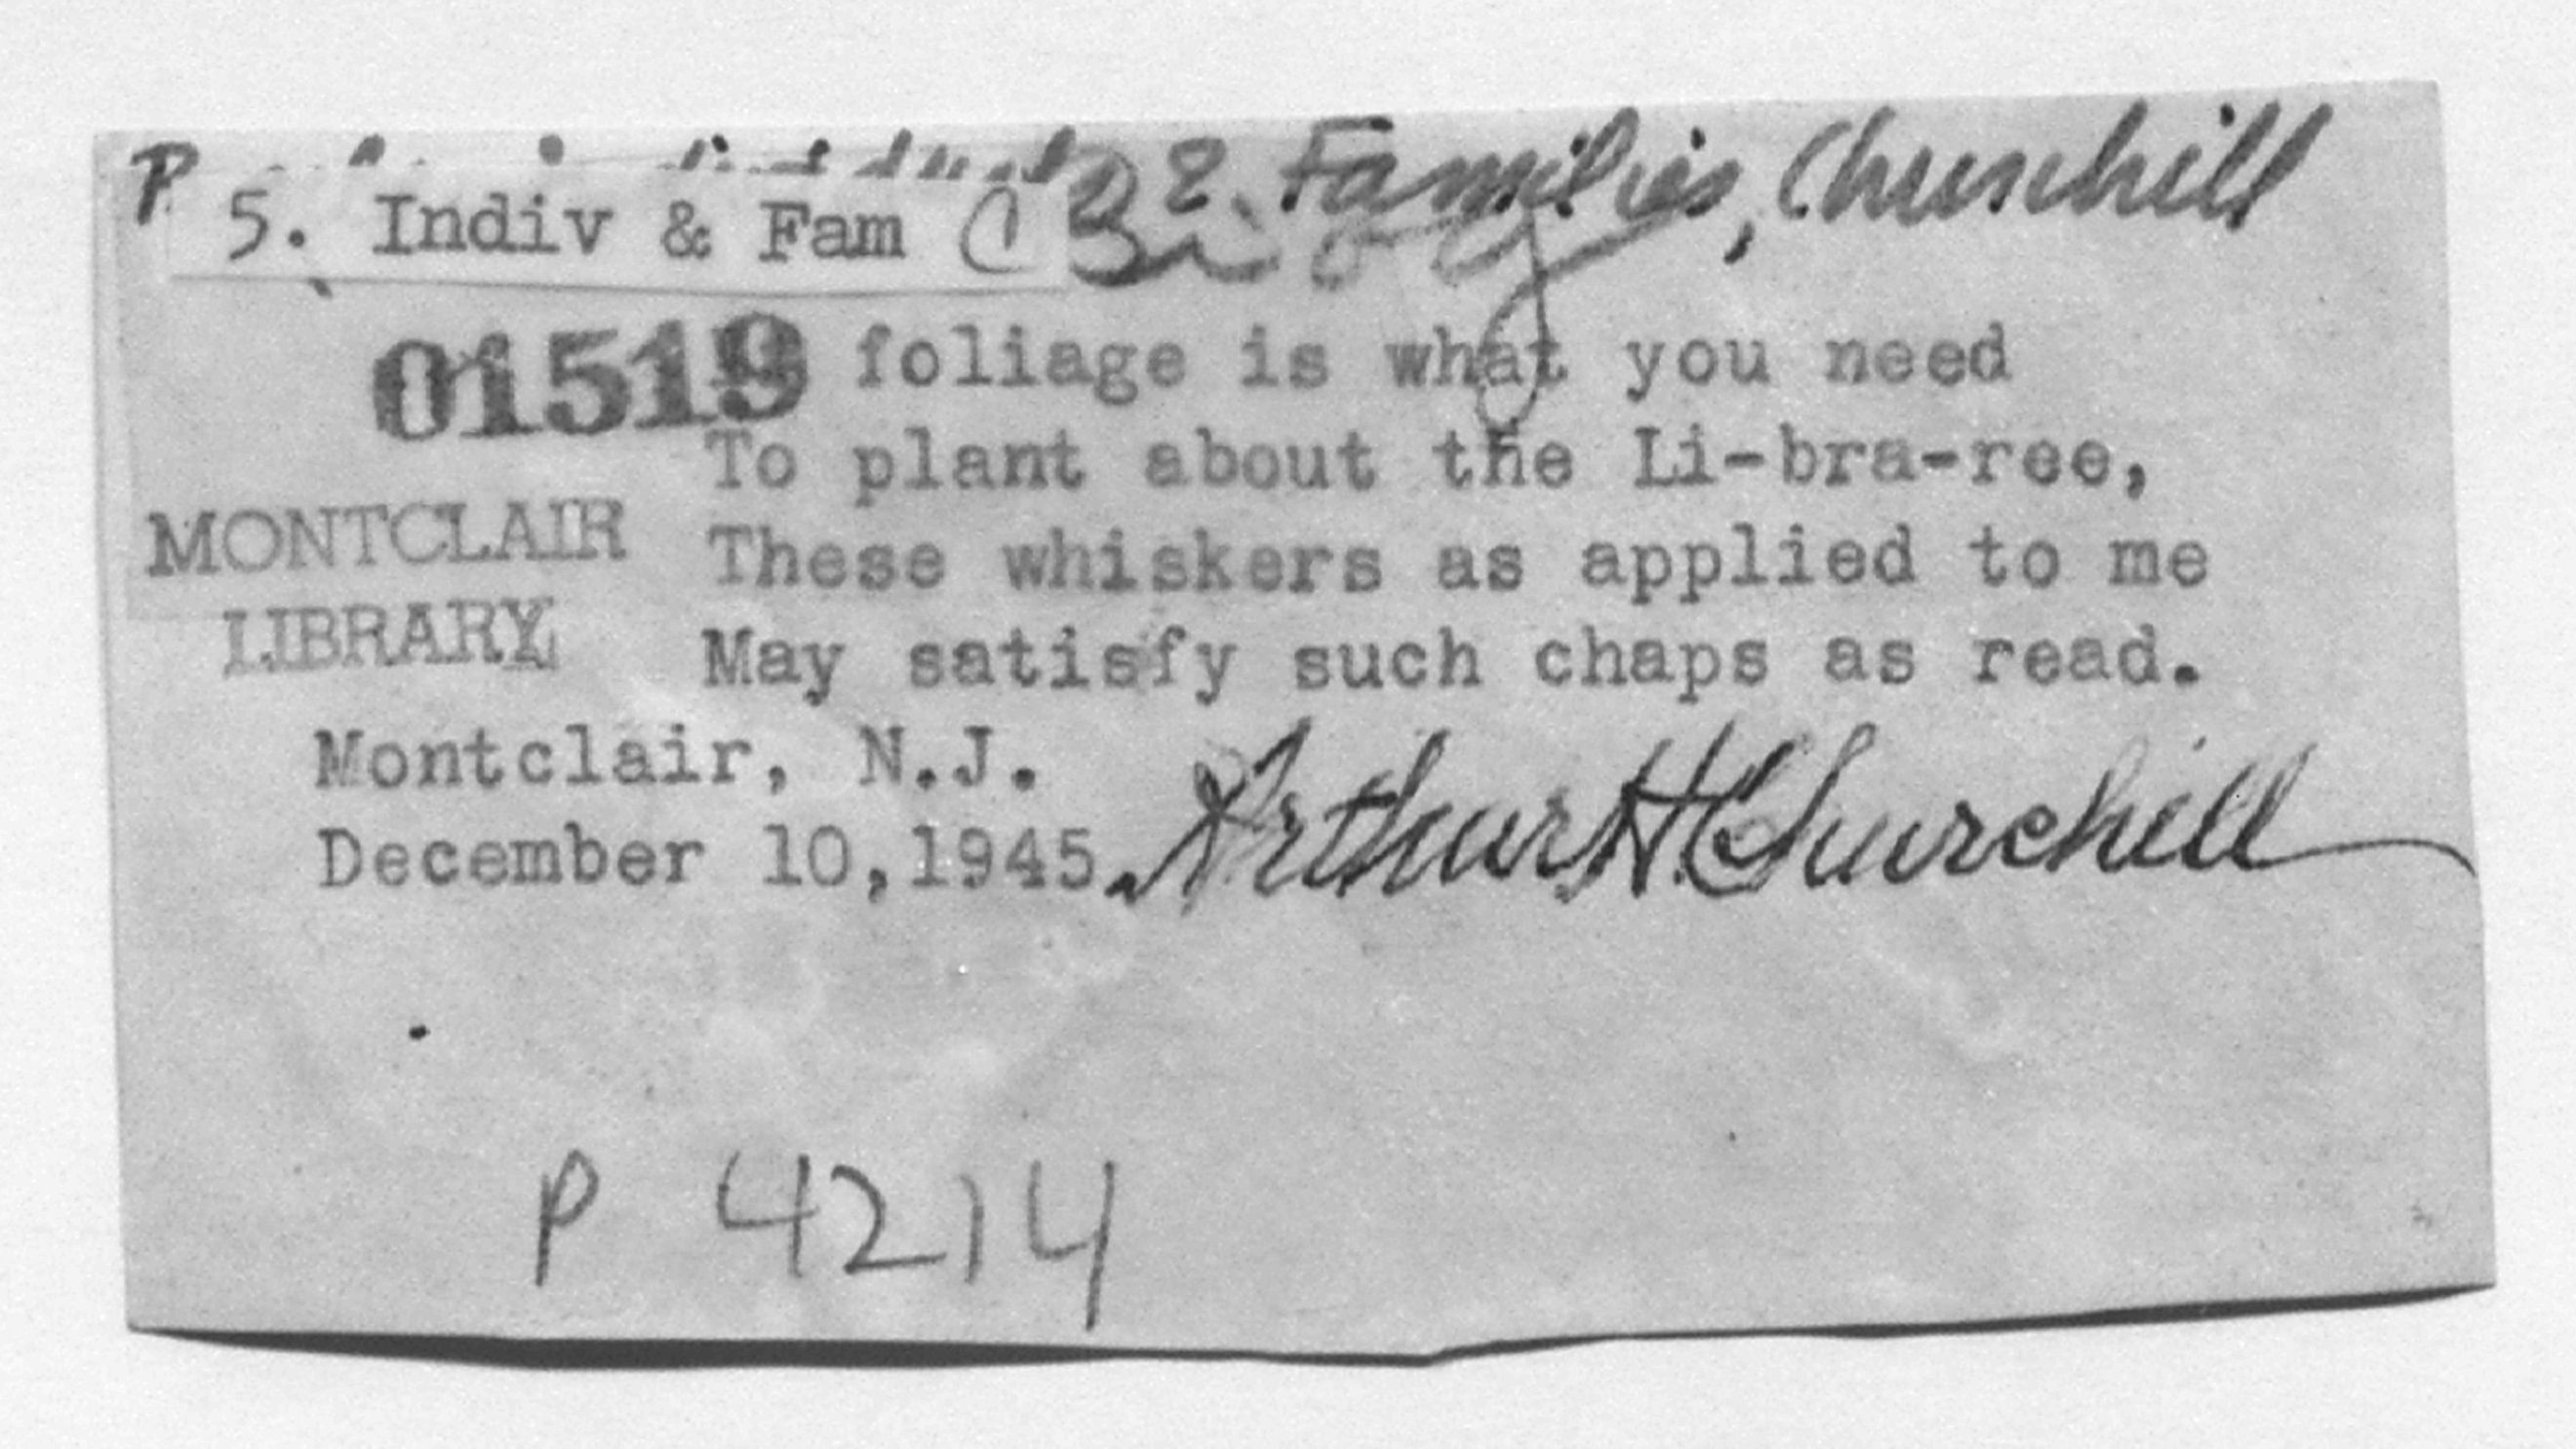 P & Families, Churchill
5. Indiv & Fam C Biog
01519 foliage is what you need
To plant about the Li-bra-ree,
MONTCLAIR These whiskers as applied to me
LIBRARY May satisfy such chaps as read.
Montclair, N.J.
December 10, 1945. Arthur H. Churchill
P 4214